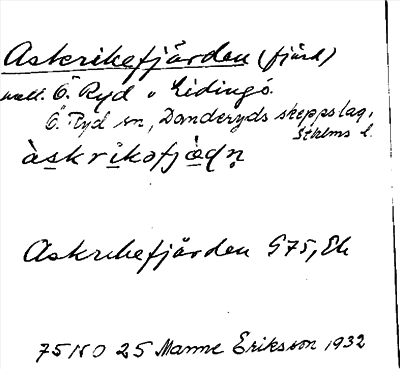 Askrikefjärden (fjärd)
mell. Ö. Ryd o Lidingö.
Ö. Ryd sn, Danderyds skeppslag,
Sthlms l.
àskrìkəfjà̱dṇ
Askrikefjärden G75, Ek
75 NO 25 Manne Eriksson 1932